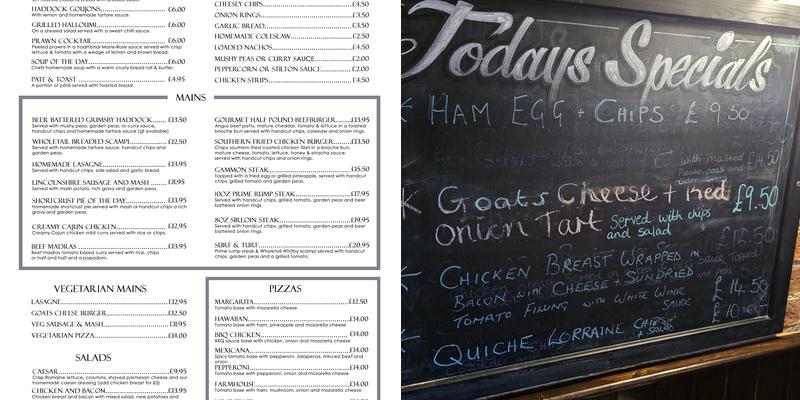 HADDOCK GOUJONS £6.00
With lemon and homemade tartare sauce.
GRILLED HALLOUMI £6.00
On a dressed salad served with a sweet chilli sauce.
PRAWN COCKTAIL £6.00
Peeled prawns in a traditional Marie-Rose sauce served with crisp
lettuce & tomato with a wedge of lemon and brown bread.
SOUP OF THE DAY £6.00
Chefs homemade soup with a warm crusty bread roll & butter.
PATE & TOAST £4.95
A portion of pâté served with toasted bread.
CHEESEY CHIPS £4.50
ONION RINGS £3.50
GARLIC BREAD £3.50
HOMEMADE COLESLAW £2.50
LOADED NACHOS £4.50
MUSHY PEAS OR CURRY SAUCE £2.00
PEPPERCORN OR STILTON SAUCE £2.00
CHICKEN STRIPS £4.50
MAINS
BEER BATTERED GRIMSBY HADDOCK £13.50
Served with mushy peas, garden peas, or curry sauce,
handcut chips and homemade tartare sauce (gf available)
WHOLETAIL BREADED SCAMPI £12.50
Served with homemade tartare sauce, handcut chips and
garden peas.
HOMEMADE LASAGNE £13.95
Served with handcut chips, side salad and garlic bread.
LINCOLNSHIRE SAUSAGE AND MASH £11.95
Served with mash potato, rich gravy and garden peas.
SHORTCRUST PIE OF THE DAY £13.95
Homemade shortcrust pie served with mash or handcut chips a rich
gravy and garden peas.
CREAMY CAJUN CHICKEN £12.95
Creamy Cajun chicken mild curry served with rice or chips.
BEEF MADRAS £13.95
Beef madras tomato based curry served with rice, chips
or half and half and a popadom.
GOURMET HALF POUND BEEFBURGER £13.95
Angus beef patty, mature cheddar, tomato & lettuce in a toasted
brioche bun served with handcut chips, coleslaw and onion rings.
SOUTHERN FRIED CHICKEN BURGER £13.50
Crispy southern fried coated chicken fillet in a brioche bun,
mature cheese, tomato, lettuce, honey & sriracha sauce,
served with handcut chips and onion rings.
GAMMON STEAK £15.50
Topped with a fried egg or grilled pineapple, served with handcut
chips, grilled tomato and garden peas.
10OZ PRIME RUMP STEAK £17.95
Served with handcut chips, grilled tomato, garden peas and beer
battered onion rings.
8OZ SIRLOIN STEAK £19.95
Served with handcut chips, grilled tomato, garden peas and beer
battered onion rings.
SURF & TURF £20.95
Prime rump steak & Wholetail Whitby scampi served with handcut
chips, garden peas and a grilled tomato.
VEGETARIAN MAINS
LASAGNE £12.95
GOATS CHEESE BURGER £12.50
VEG SAUSAGE & MASH £11.95
VEGETARIAN PIZZA £14.00
SALADS
CAESAR £9.95
Crisp Romaine lettuce, croutons, shaved parmesan cheese and our
homemade caesar dressing (add chicken breast for £3)
CHICKEN AND BACON £13.95
Chicken breast and bacon with mixed salad, new potatoes and
PIZZAS
MARGARITA £12.50
Tomato base with mozarella cheese
HAWAIIAN £14.00
Tomato base with ham, pineapple and mozarella cheese
BBQ CHICKEN £14.00
BBQ sauce base with chicken, onion and mozarella cheese
MEXICANA £14.00
Spicy tomato base with pepperoni, Jalapenos, minced beef and
onion
PEPPERONI £14.00
Tomato base with pepperoni, onion and mozarella cheese
FARMHOUSE £14.00
Tomato base with ham, mushroom, onion and mozarella cheese
Todays Specials
HAM EGG + CHIPS £9.50
with mashed
£14.50
Goats Cheese + Red £9.50
Onion Tart Served with chips
and salad
CHICKEN BREAST WRAPPED IN
BACON WITH CHEESE + SUNDRIED
TOMATO FILLING WITH WHITE WINE
SAUCE £14.50
QUICHE LORRAINE CHIPS
+ SALAD